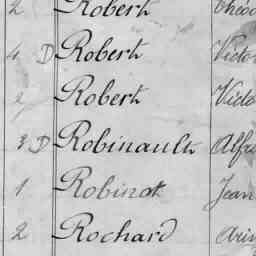 2 Robert Théo
4 D Robert Victo
2 Robert Victo
3 D Robinault Alfre
1 Robinot Jean
2 Rochard